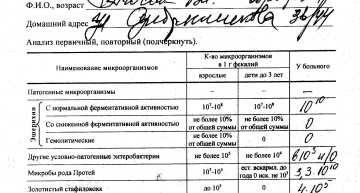 Ф.И.О., возраст
Домашний адрес ул 36/44
Анализ первичный, повторный (подчеркнуть).
Наименование микроорганизмов
К-во микроорганизмов в 1 г фекалий
У больного
взрослые
дети до 3 лет
Патогенные микроорганизмы – – –
Эшерихии
С нормальной ферментативной активностью 10⁷-10⁸ 10⁷-10⁸ 10¹⁰
Со сниженной ферментативной активностью не более 10% от общей суммы не более 10% от общей суммы 0
Гемолитические 0 0 0
Другие условно-патогенные энтеробактерии не более 10⁵ не более 10⁴
Микробы рода Протей 10³-10⁴ ест. вскармл. до года 0 иск. не 10³ 3,3 10¹⁰
Золотистый стафилококк до 10³ 0 4·10⁵